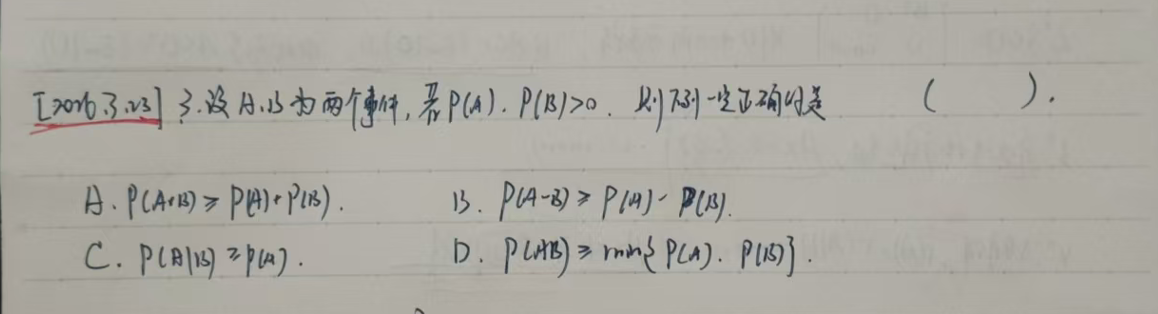 [2026.3.23] 3.设A.B为两个事件,若P(A).P(B)>0.则下列一定正确的是 ( ).
A.P(A+B)≥P(A)+P(B). B.P(A-B)≥P(A)-P(B).
C.P(A|B)≥P(A). D.P(AB)≥min{P(A).P(B)}.